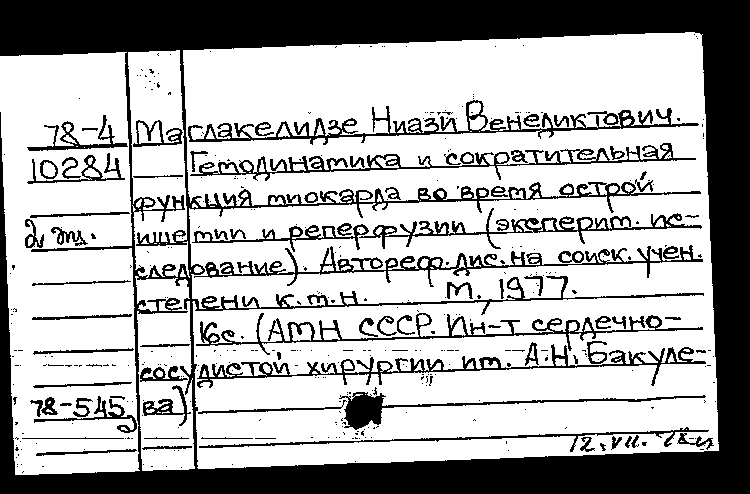 78-4 Маглакелидзе, Ниази Венедиктович.
10284 Гемодинамика и сократительная
функция миокарда во время острой
2 эц. ишемии и реперфузии (эксперим. ис-
следование). Автореф. дис. на соиск. учен.
степени к.м.н. М., 1977.
16с. (АМН СССР. Ин-т сердечно-
сосудистой хирургии им. А.Н. Бакуле-
78-545 ва)
12.VII.